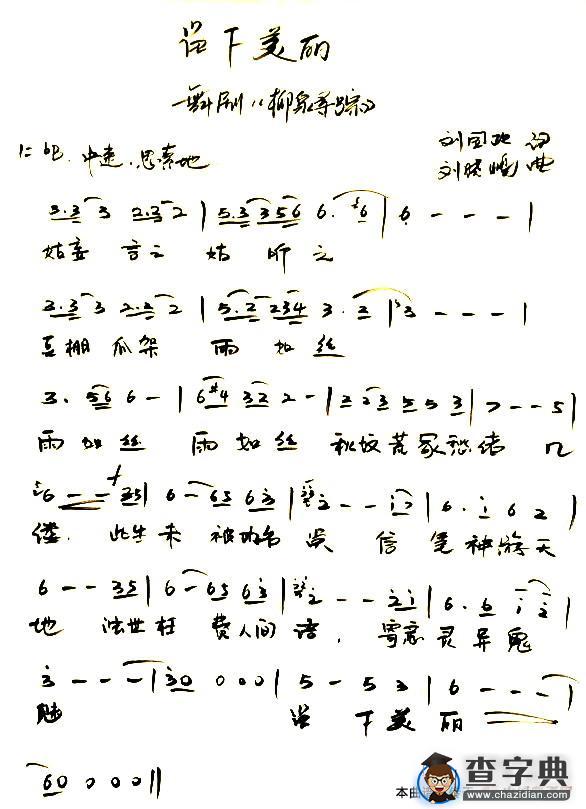 留下美丽
舞剧《柳泉寻踪》
1=bE 中速、思索地
刘国 词
刘晓 曲
3.3 3 2.3 2 | 5.3 356 6. 6 | 6 - - - |
姑妄言之 姑听之
3.3 3 2.2 2 | 5.2 234 3. 2 | 3 - - - |
豆棚瓜架 雨如丝
3. 56 6 - | 6#4 32 2 - | 2 2 3 5 5 3 | 7 - - 5 |
雨如丝 雨如丝 秋坟荒冢愁绪几
6 - - 35 | 6 - 65 63 | 2 - - i7 | 6. i 6 2 |
缕 此生未被功名误 信笔神游天
6 - - 35 | 6 - 65 63 | 2 - - 2i | 6. 6 i 2 |
地 浊世枉费人间 寄意灵异鬼
3 - - - | 30 0 0 0 | 5 - 5 3 | 6 - - - |
魅 留下美丽
60 0 0 0 ||
本曲
查字典
www.chazidian.com